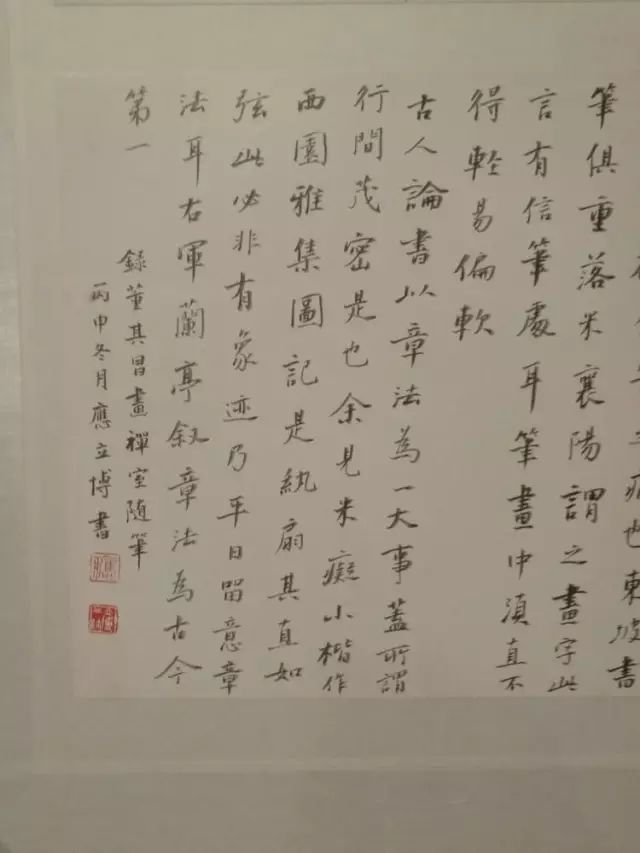 病也東坡書
筆俱重落米襄陽謂之畫字此
言有信筆處耳筆畫中須直不
得輕易偏軟
古人論書以章法為一大事蓋所謂
行間茂密是也余見米癡小楷作
西園雅集圖記是紈扇其直如
弦此必非有象迹乃平日留意章
法耳右軍蘭亭敘章法為古今
第一
錄董其昌畫禪室隨筆
丙申冬月應立博書